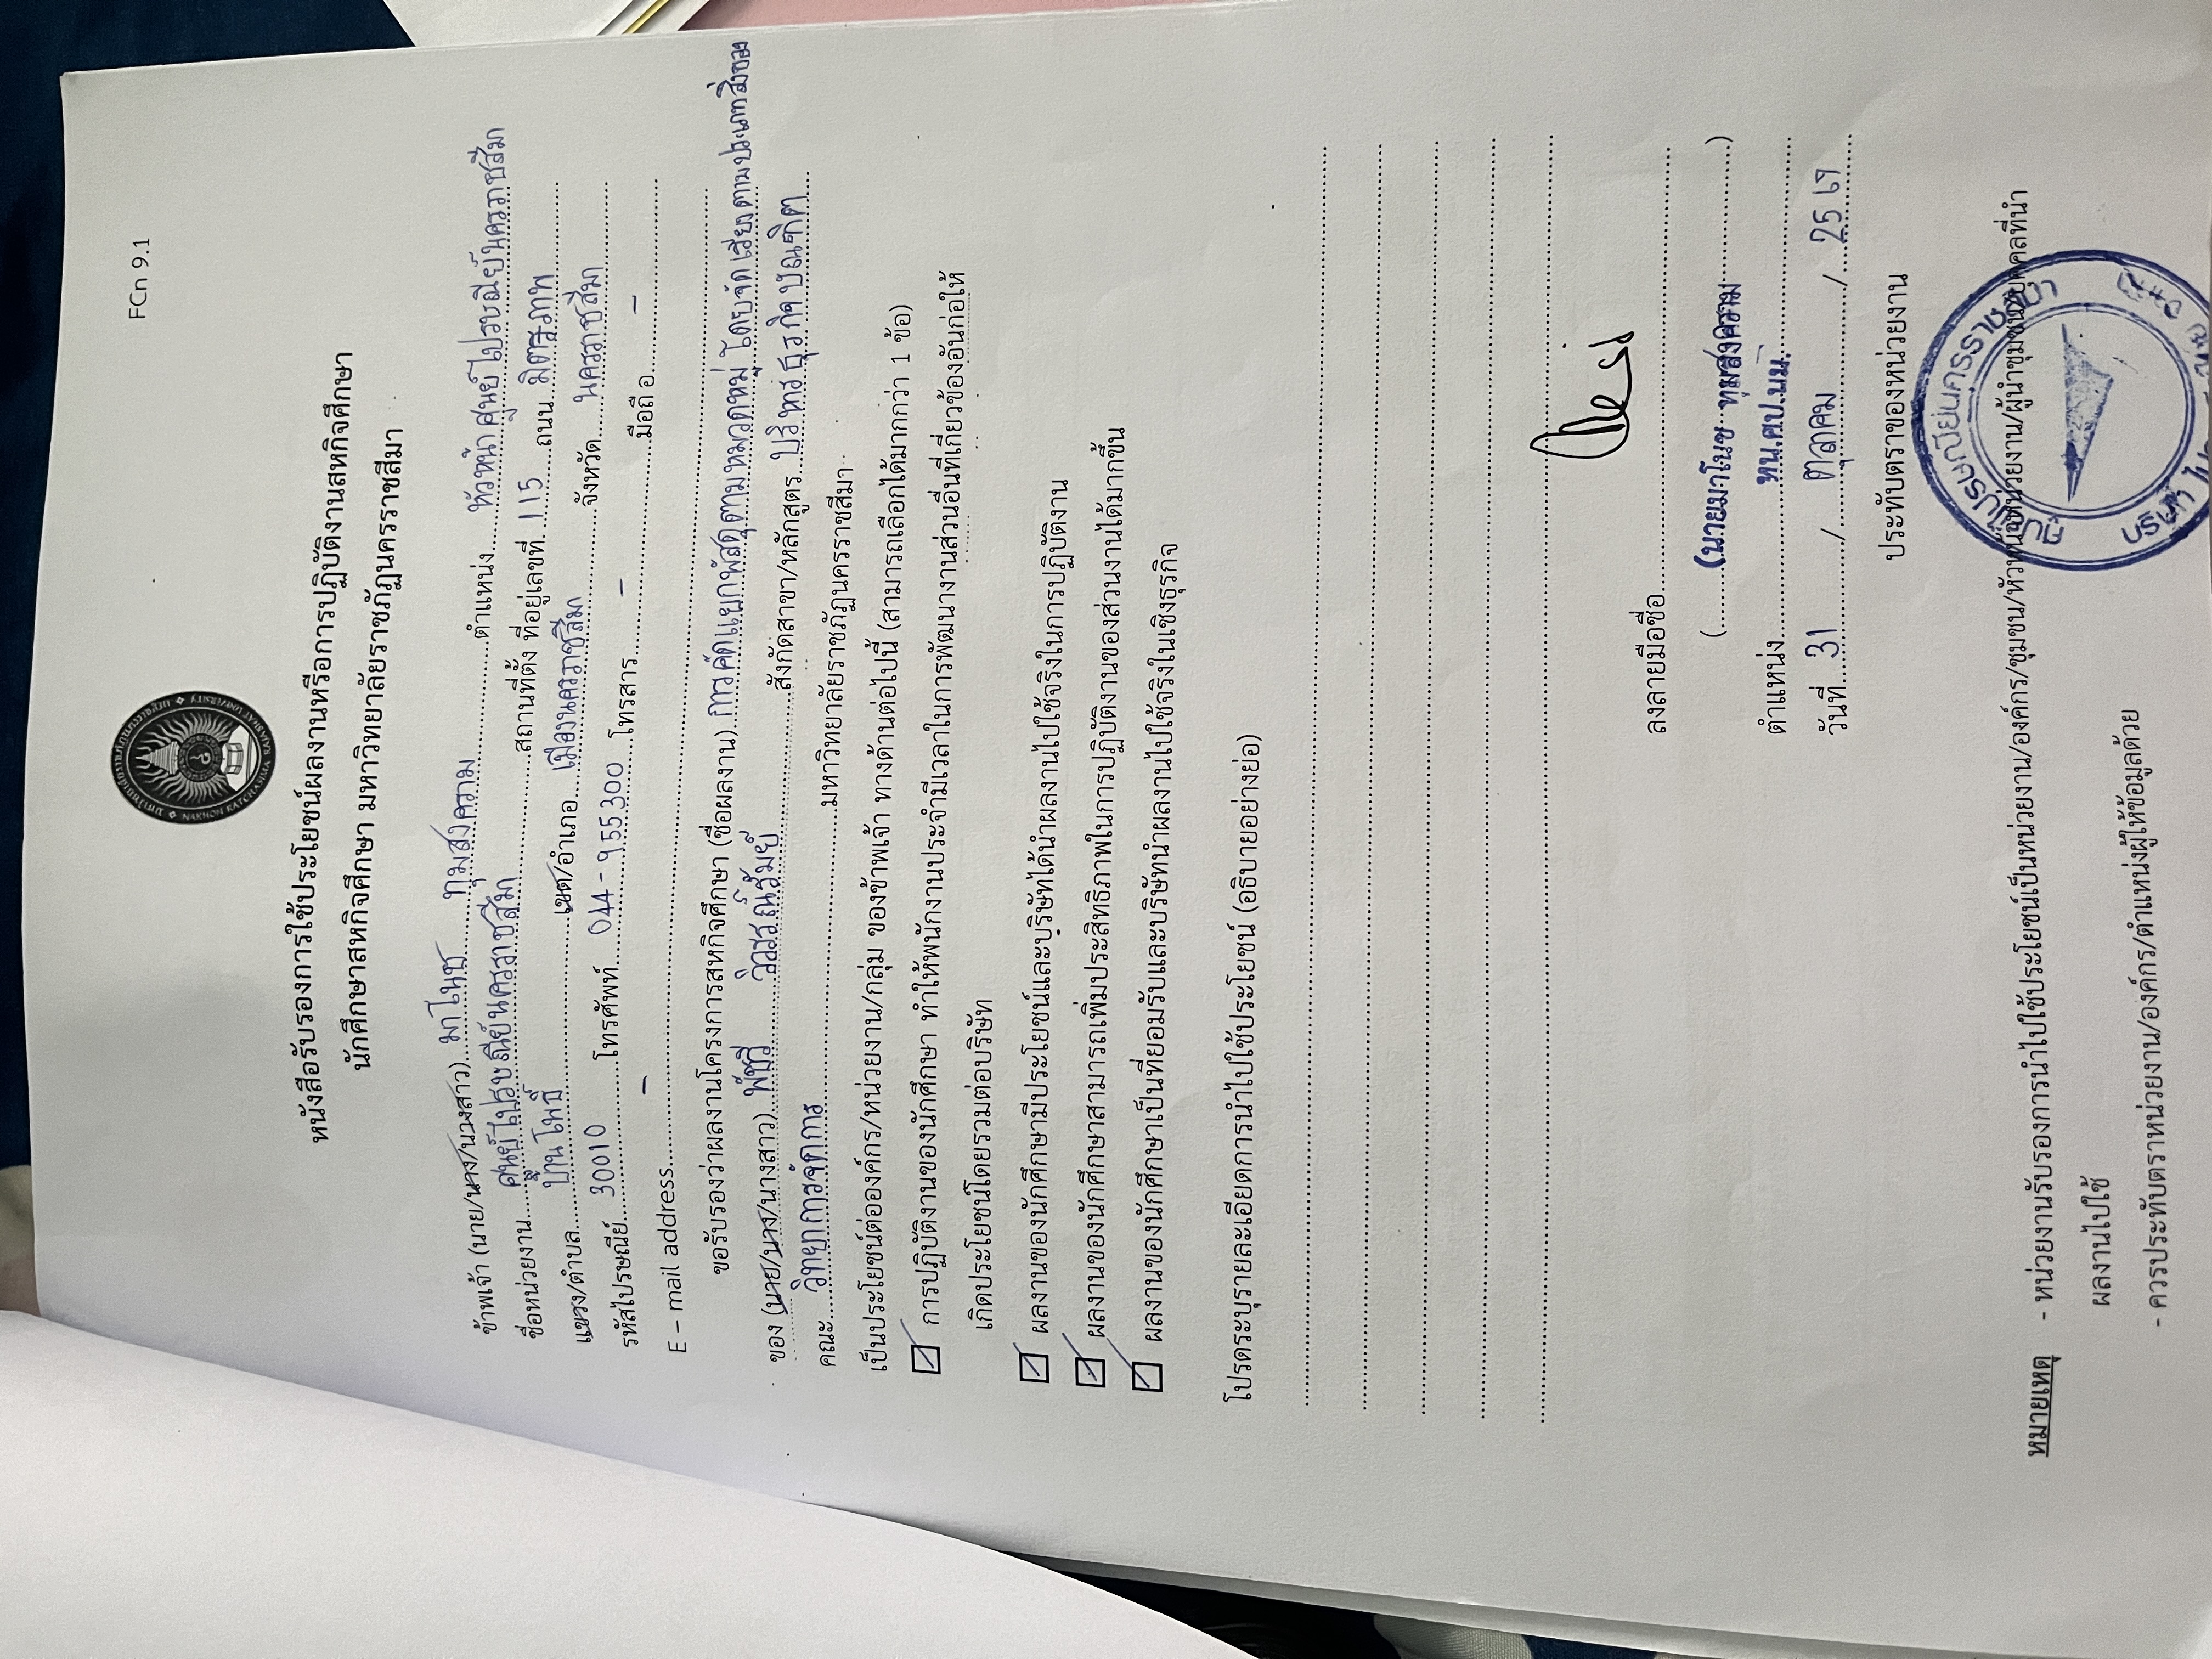 FCn 9.1
หนังสือรับรองการใช้ประโยชน์ผลงานหรือการปฏิบัติงานสหกิจศึกษา
นักศึกษาสหกิจศึกษา มหาวิทยาลัยราชภัฏนครราชสีมา
ข้าพเจ้า (นาย/นาง/นางสาว) มาโนช ทุมสงคราม ตำแหน่ง หัวหน้าศูนย์ไปรษณีย์นครราชสีมา
ชื่อหน่วยงาน ศูนย์ไปรษณีย์นครราชสีมา สถานที่ตั้ง ที่อยู่เลขที่ 115 ถนน มิตรภาพ
แขวง/ตำบล บ้านโพธิ์ เขต/อำเภอ เมืองนครราชสีมา จังหวัด นครราชสีมา
รหัสไปรษณีย์ 30010 โทรศัพท์ 044-955300 โทรสาร - มือถือ -
E – mail address -
ขอรับรองว่าผลงานโครงการสหกิจศึกษา (ชื่อผลงาน) การคัดแยกพัสดุตามหมวดหมู่ โดยจัดเรียงตามประเภทสิ่งของ
ของ (นาย/นาง/นางสาว) พัชรี สังกัดสาขา/หลักสูตร บริหารธุรกิจบัณฑิต
คณะ วิทยาการจัดการ มหาวิทยาลัยราชภัฏนครราชสีมา
เป็นประโยชน์ต่อองค์กร/หน่วยงาน/กลุ่ม ของข้าพเจ้า ทางด้านต่อไปนี้ (สามารถเลือกได้มากกว่า 1 ข้อ)
การปฏิบัติงานของนักศึกษา ทำให้พนักงานประจำมีเวลาในการพัฒนางานส่วนอื่นที่เกี่ยวข้องอันก่อให้
เกิดประโยชน์โดยรวมต่อบริษัท
ผลงานของนักศึกษามีประโยชน์และบริษัทได้นำผลงานไปใช้จริงในการปฏิบัติงาน
ผลงานของนักศึกษาสามารถเพิ่มประสิทธิภาพในการปฏิบัติงานของส่วนงานได้มากขึ้น
ผลงานของนักศึกษาเป็นที่ยอมรับและบริษัทนำผลงานไปใช้จริงในเชิงธุรกิจ
โปรดระบุรายละเอียดการนำไปใช้ประโยชน์ (อธิบายอย่างย่อ)
ลงลายมือชื่อ
(นายมาโนช ทุมสงคราม)
ตำแหน่ง หน.ศป.นม.
วันที่ 31 / ตุลาคม / 2567
ประทับตราของหน่วยงาน
ศูนย์ไปรษณีย์นครราชสีมา
หมายเหตุ - หน่วยงานรับรองการนำไปใช้ประโยชน์เป็นหน่วยงาน/องค์กร/ชุมชน/หัวหน้าหน่วยงาน/ผู้นำชุมชนบุคคลที่นำ
ผลงานไปใช้
- ควรประทับตราหน่วยงาน/องค์กร/ตำแหน่งผู้ให้ข้อมูลด้วย